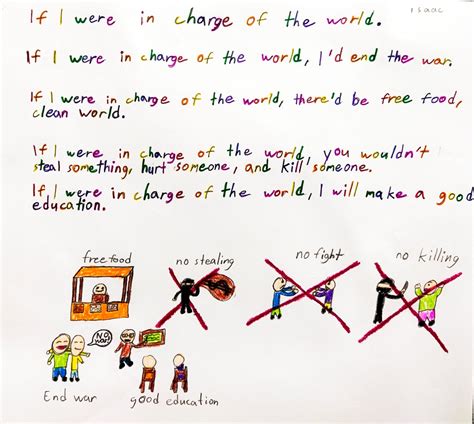 Isaac
If I were in charge of the world.
If I were in charge of the world, I'd end the war.
If I were in charge of the world, there'd be free food,
clean world.
If I were in charge of the world, you wouldn't
steal something, hurt someone, and kill someone.
If I were in charge of the world, I will make a good
education.
free food
no stealing
no fight
no killing
NO WAR!
End war
good education